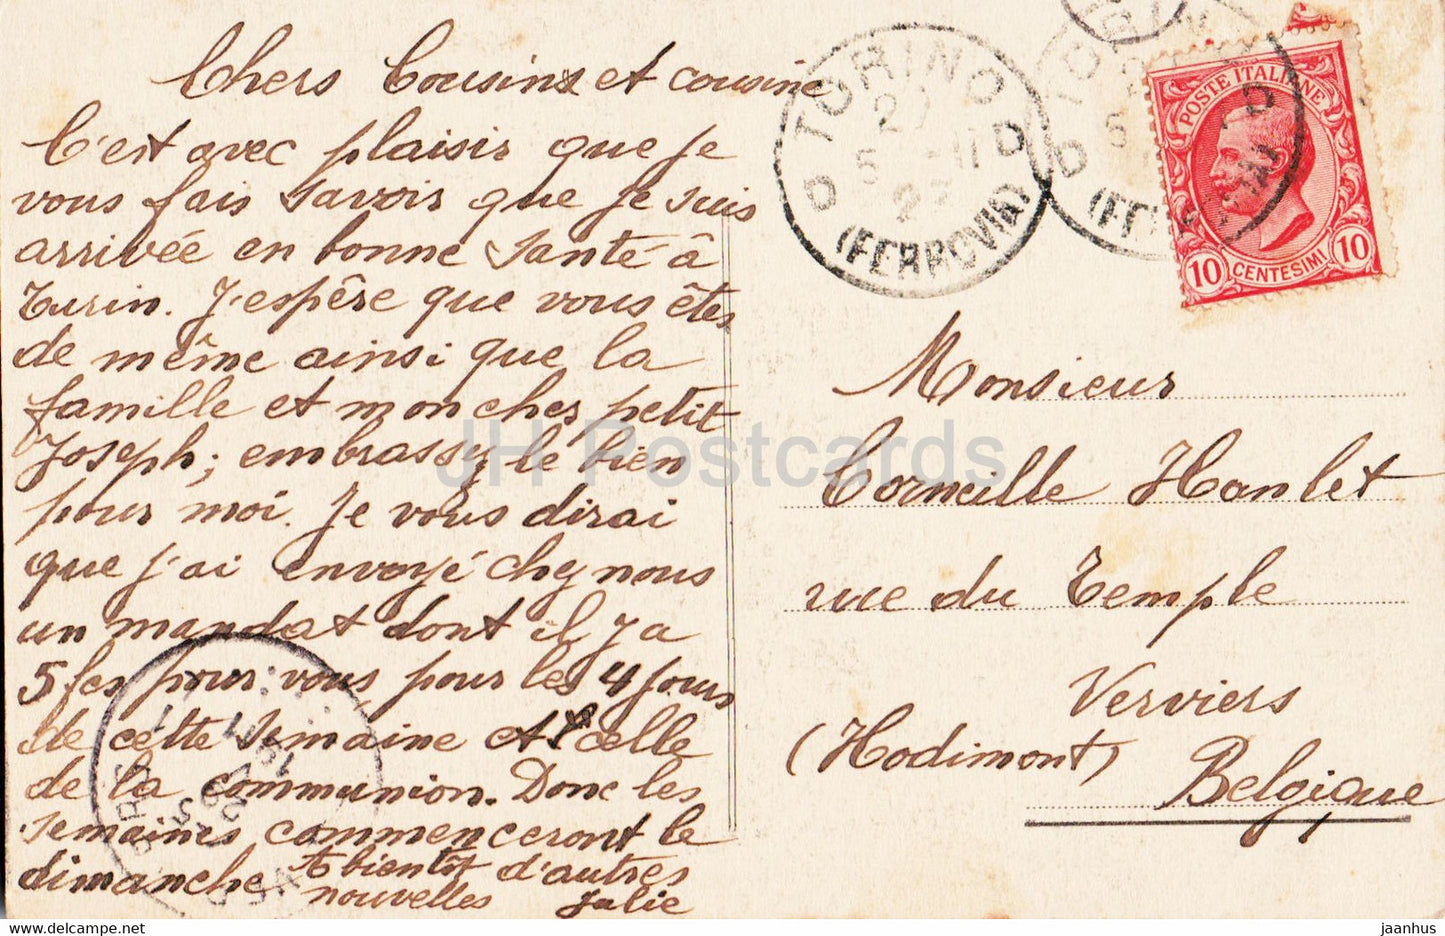 Chers Cousins et cousine
C'est avec plaisir que je
vous fais savoir que je suis
arrivée en bonne santé â
Turin. J'espêre que vous êtes
de même ainsi que la
famille et mon cher petit
Joseph; embrassy le bien
pour moi. Je vous dirai
que j'ai envoyé chez nous
un mandat dont il y a
5 fcs pour vous pour les 4 jours
de cette semaine et celle
de la communion. Donc les
semaines commenceront le
dimanche. A bientôt d'autres
nouvelles Julie
TORINO
27
5 - 11
27
D D
(FERROVIA)
TORINO
5
D D
(FERROVIA)
POSTE ITALIANE
10 CENTESIMI 10
Monsieur
Corneille Hanlet
rue du Temple
Verviers
(Hodimont)
Belgique
1911
JH Postcards
delcampe.net
jaanhus